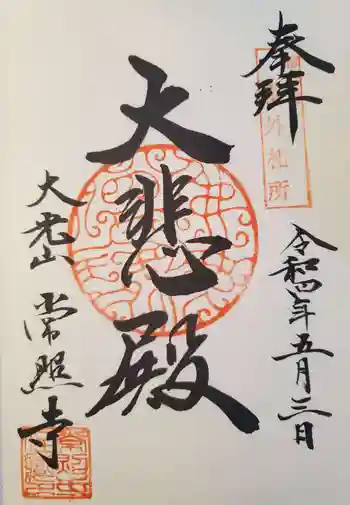 奉拝
外札所
令和四年五月三日
大悲殿
大光山
常照寺